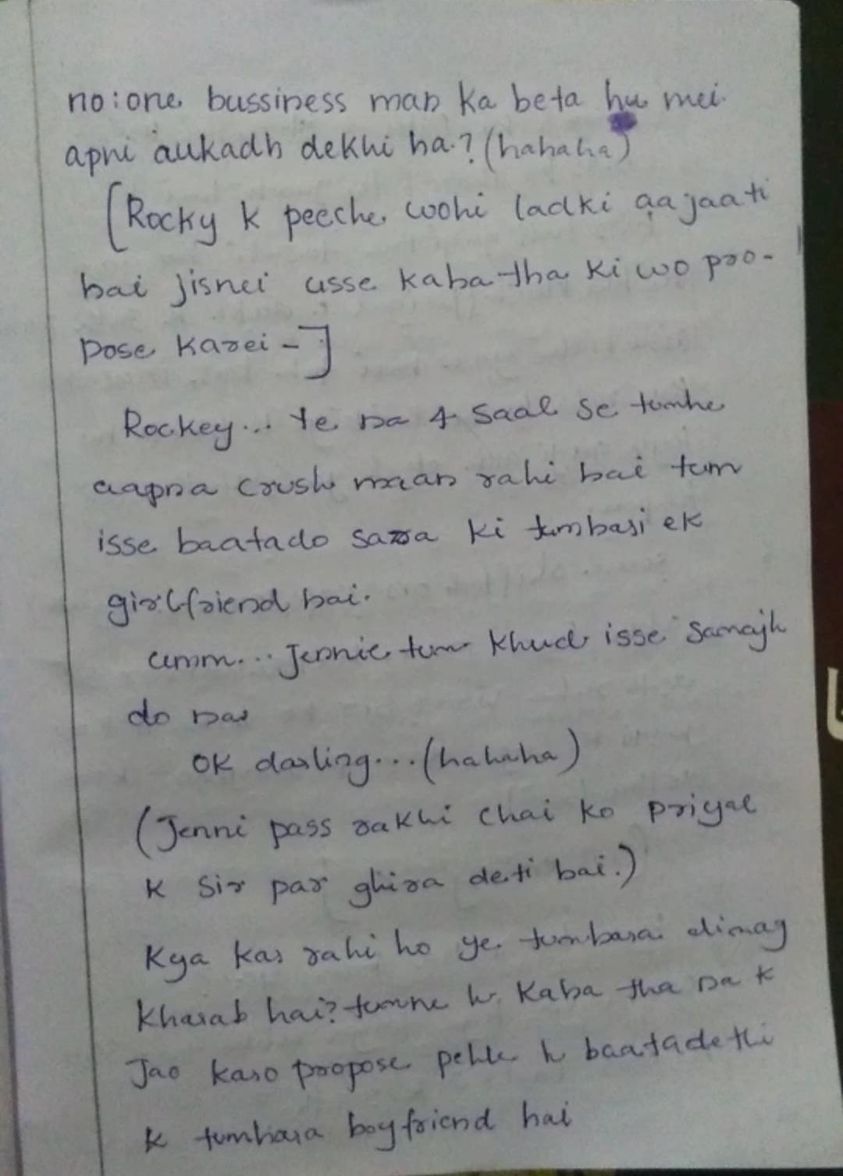 no:one bussiness man ka beta hu mei
apni aukadh dekhi ha? (hahaha)
[Rocky k peeche wohi ladki aajaati
hai jisnei usse kaha tha ki wo pro-
pose karei -]
Rockey... Ye na 4 saal se tumhe
aapna crush maan rahi hai tum
isse baatado sazra ki tumhari ek
girlfriend hai.
umm... Jennie tum khud isse samajh
do na
OK darling... (hahaha)
(Jenni pass rakhi chai ko priyal
k sir par ghira deti hai.)
Kya kar rahi ho ye tumhara dimag
kharab hai? tumne h kaha tha na k
Jao karo propose pehle h baatadethi
k tumhara boyfriend hai